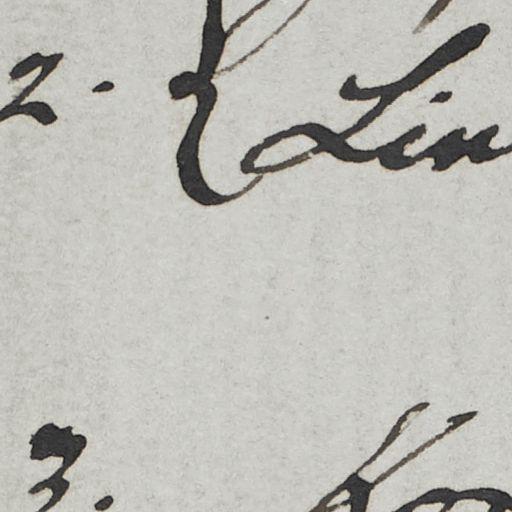 2. { Lin
3.